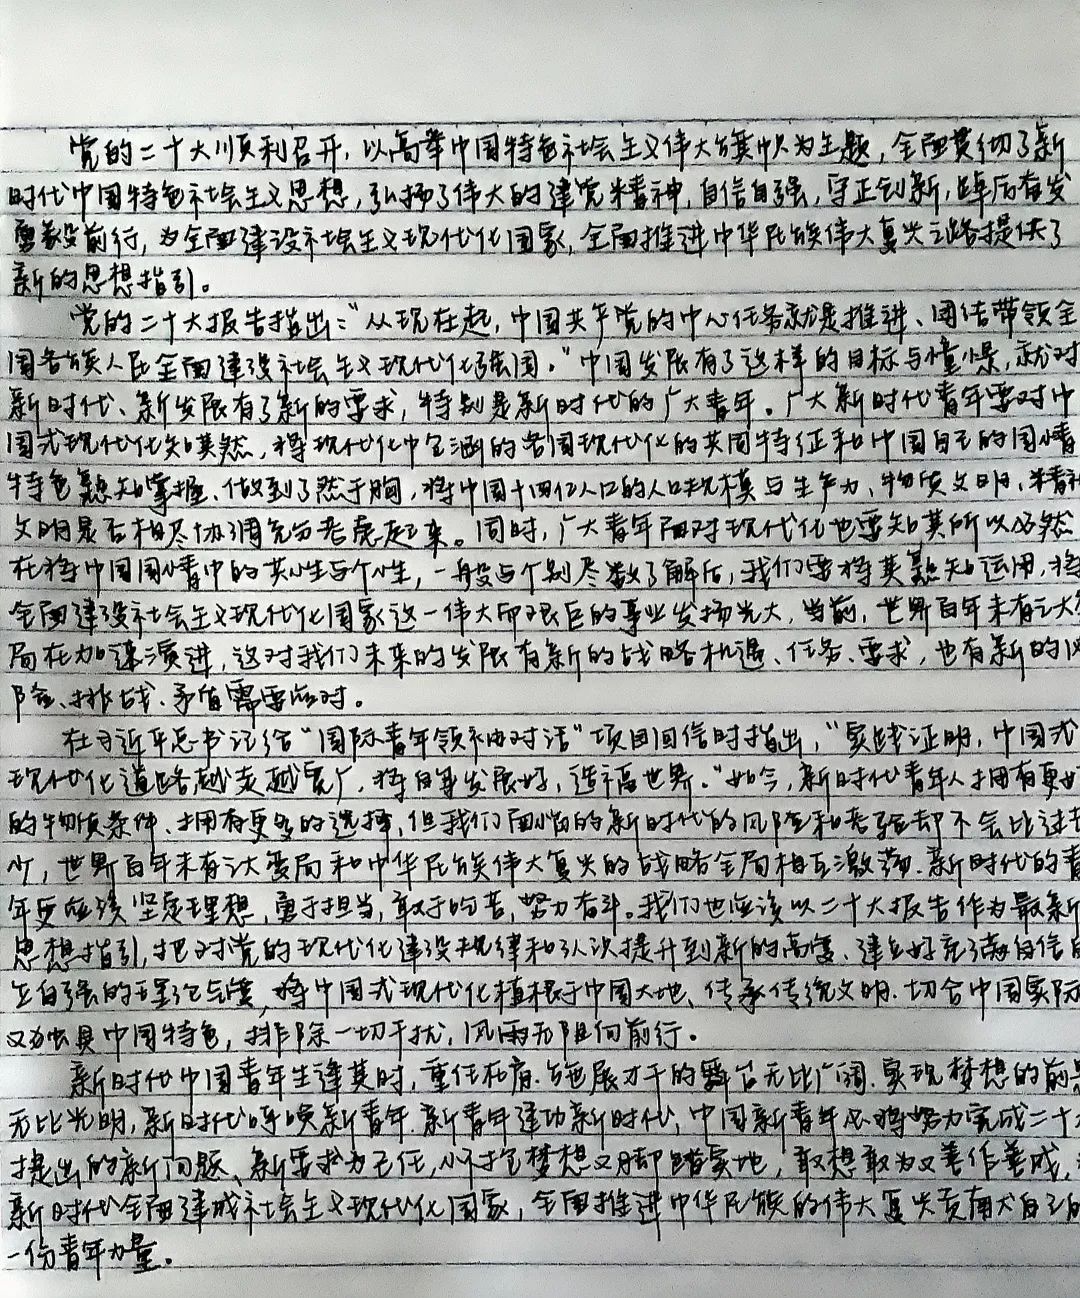 党的二十大顺利召开，以高举中国特色社会主义伟大旗帜为主题，全面贯彻了新
时代中国特色社会主义思想，弘扬了伟大的建党精神，自信自强，守正创新，踔厉奋发
勇毅前行，为全面建设社会主义现代化国家，全面推进中华民族伟大复兴之路提供了
新的思想指引。
党的二十大报告指出：“从现在起，中国共产党的中心任务就是推进、团结带领全
国各族人民全面建设社会主义现代化强国。”中国发展有了这样的目标与憧憬，就对
新时代、新发展有了新的要求，特别是新时代的广大青年。广大新时代青年要对中
国式现代化知其然，将现代化中包涵的各国现代化的共同特征和中国自己的国情
特色熟知掌握、做到了然于胸，将中国十四亿人口的人口规模与生产力、物质文明、精神
文明是否相尽协调充分考虑起来。同时，广大青年面对现代化也要知其所以必然
在将中国国情中的共性与个性，一般与个别尽数了解后，我们要将其熟知运用，将
全面建设社会主义现代化国家这一伟大而艰巨的事业发扬光大，当前，世界百年未有之大
局在加速演进，这对我们未来的发展有新的战略机遇、任务、要求，也有新的风
险、挑战、矛盾需要应对。
在习近平总书记给“国际青年领袖对话”项目回信时指出，“实践证明，中国式
现代化道路越走越宽广，将自身发展好，造福世界。”如今，新时代青年人拥有更好
的物质条件、拥有更多的选择，但我们面临的新时代的风险和考验却不会比过去
少，世界百年未有之大变局和中华民族伟大复兴的战略全局相互激荡．新时代的青
年更应该坚定理想，勇于担当，敢于吃苦，努力奋斗。我们也应该以二十大报告作为最新
思想指引，把对党的现代化建设规律和认识提升到新的高度、建立好充满自信自
立自强的理论气度，将中国式现代化植根于中国大地、传承传统文明．切合中国实际
又独具中国特色，排除一切干扰，风雨无阻向前行。
新时代中国青年生逢其时，重任在肩．施展才干的舞台无比广阔．实现梦想的前景
无比光明，新时代呼唤新青年．新青年建功新时代，中国新青年必将努力完成二十大
提出的新问题、新要求为己任，怀抱梦想又脚踏实地，敢想敢为又善作善成，
新时代全面建成社会主义现代化国家，全面推进中华民族的伟大复兴贡献自己的
一份青年力量。